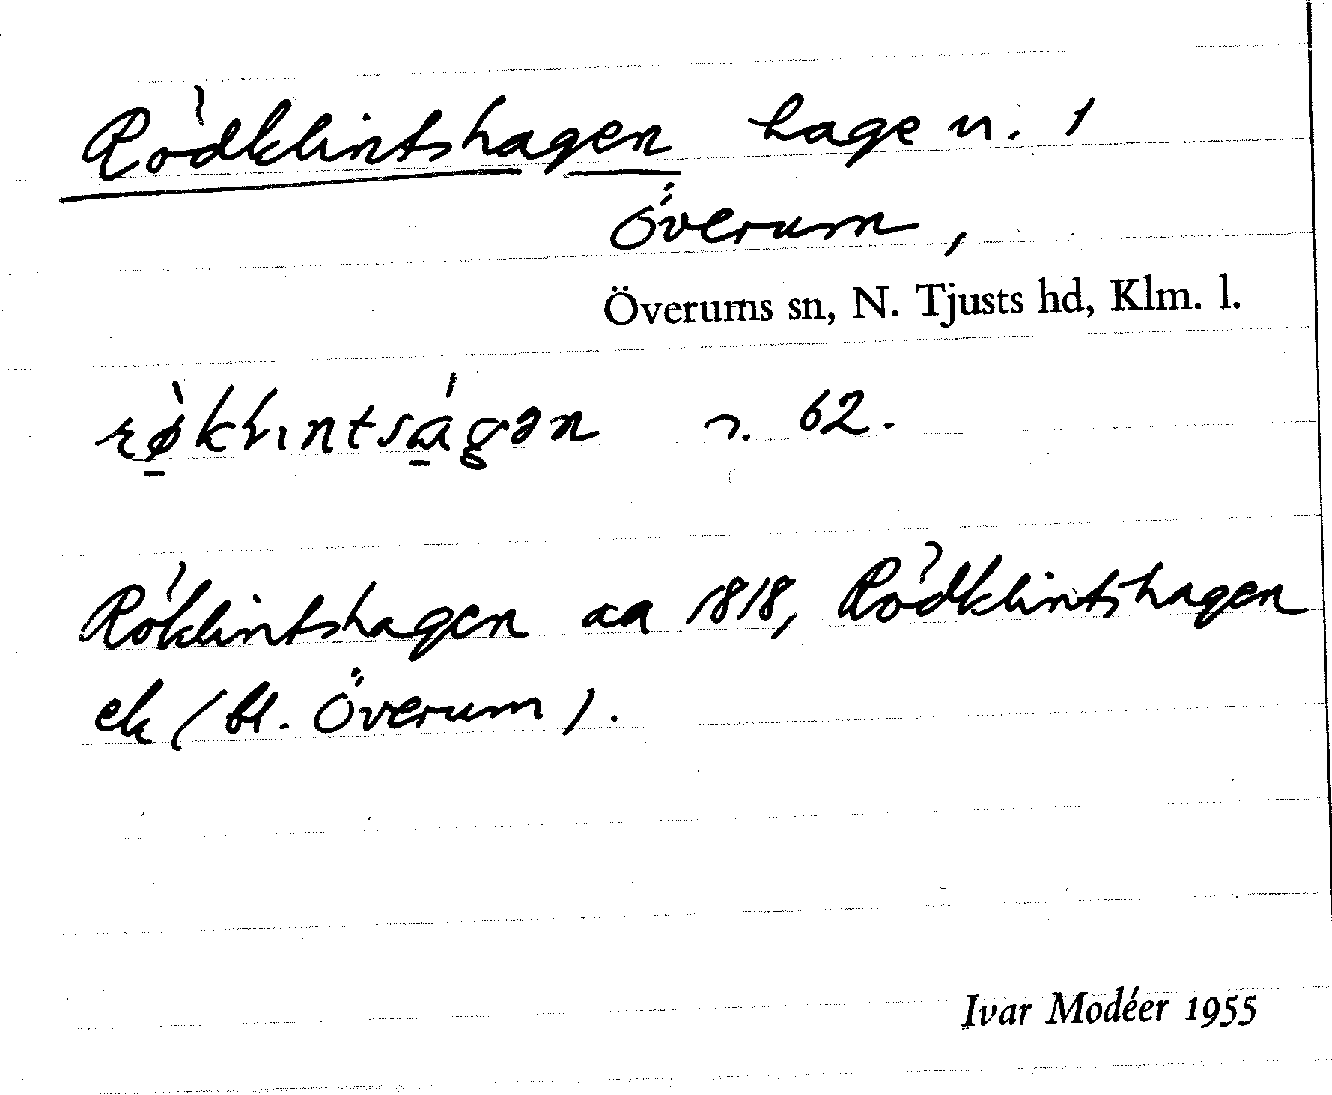 Rödklintshagen hage n. 1
Överum,
Överums sn, N. Tjusts hd, Klm. l.
rø̀klıntságən n. 62.
Röklintshagen aa 1818, Rödklintshagen
ek (bl. Överum).
Ivar Modéer 1955